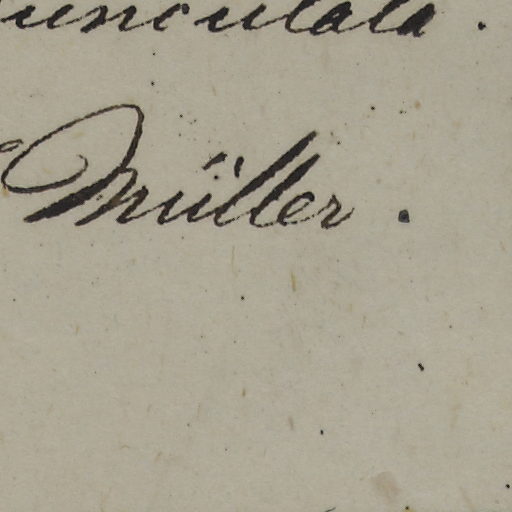 unculata.
Müller.